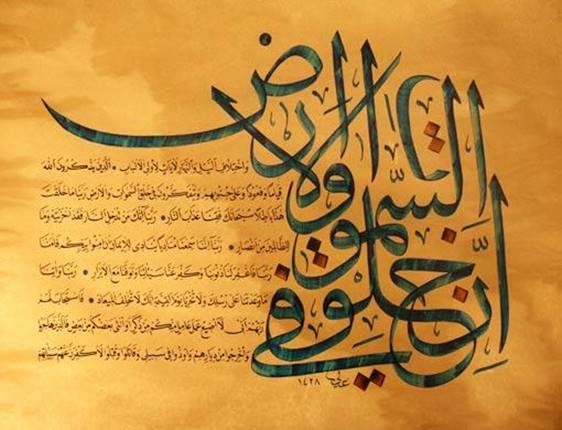 إن في خلق السموات والأرض
واختلاف الليل والنهار لآيات لأولي الألباب • الذين يذكرون الله
قياما وقعودا وعلى جنوبهم ويتفكرون في خلق السموات والأرض ربنا ما خلقت
هذا باطلا سبحانك فقنا عذاب النار • ربنا إنك من تدخل النار فقد أخزيته وما
للظالمين من أنصار • ربنا إننا سمعنا مناديا ينادي للإيمان أن آمنوا بربكم فآمنا
ربنا فاغفر لنا ذنوبنا وكفر عنا سيئاتنا وتوفنا مع الأبرار • ربنا وآتنا
ما وعدتنا على رسلك ولا تخزنا يوم القيامة إنك لا تخلف الميعاد • فاستجاب لهم
ربهم أني لا أضيع عمل عامل منكم من ذكر أو أنثى بعضكم من بعض فالذين هاجروا
وأخرجوا من ديارهم وأوذوا في سبيلي وقاتلوا وقتلوا لأكفرن عنهم سيئاتهم
١٤٢٨